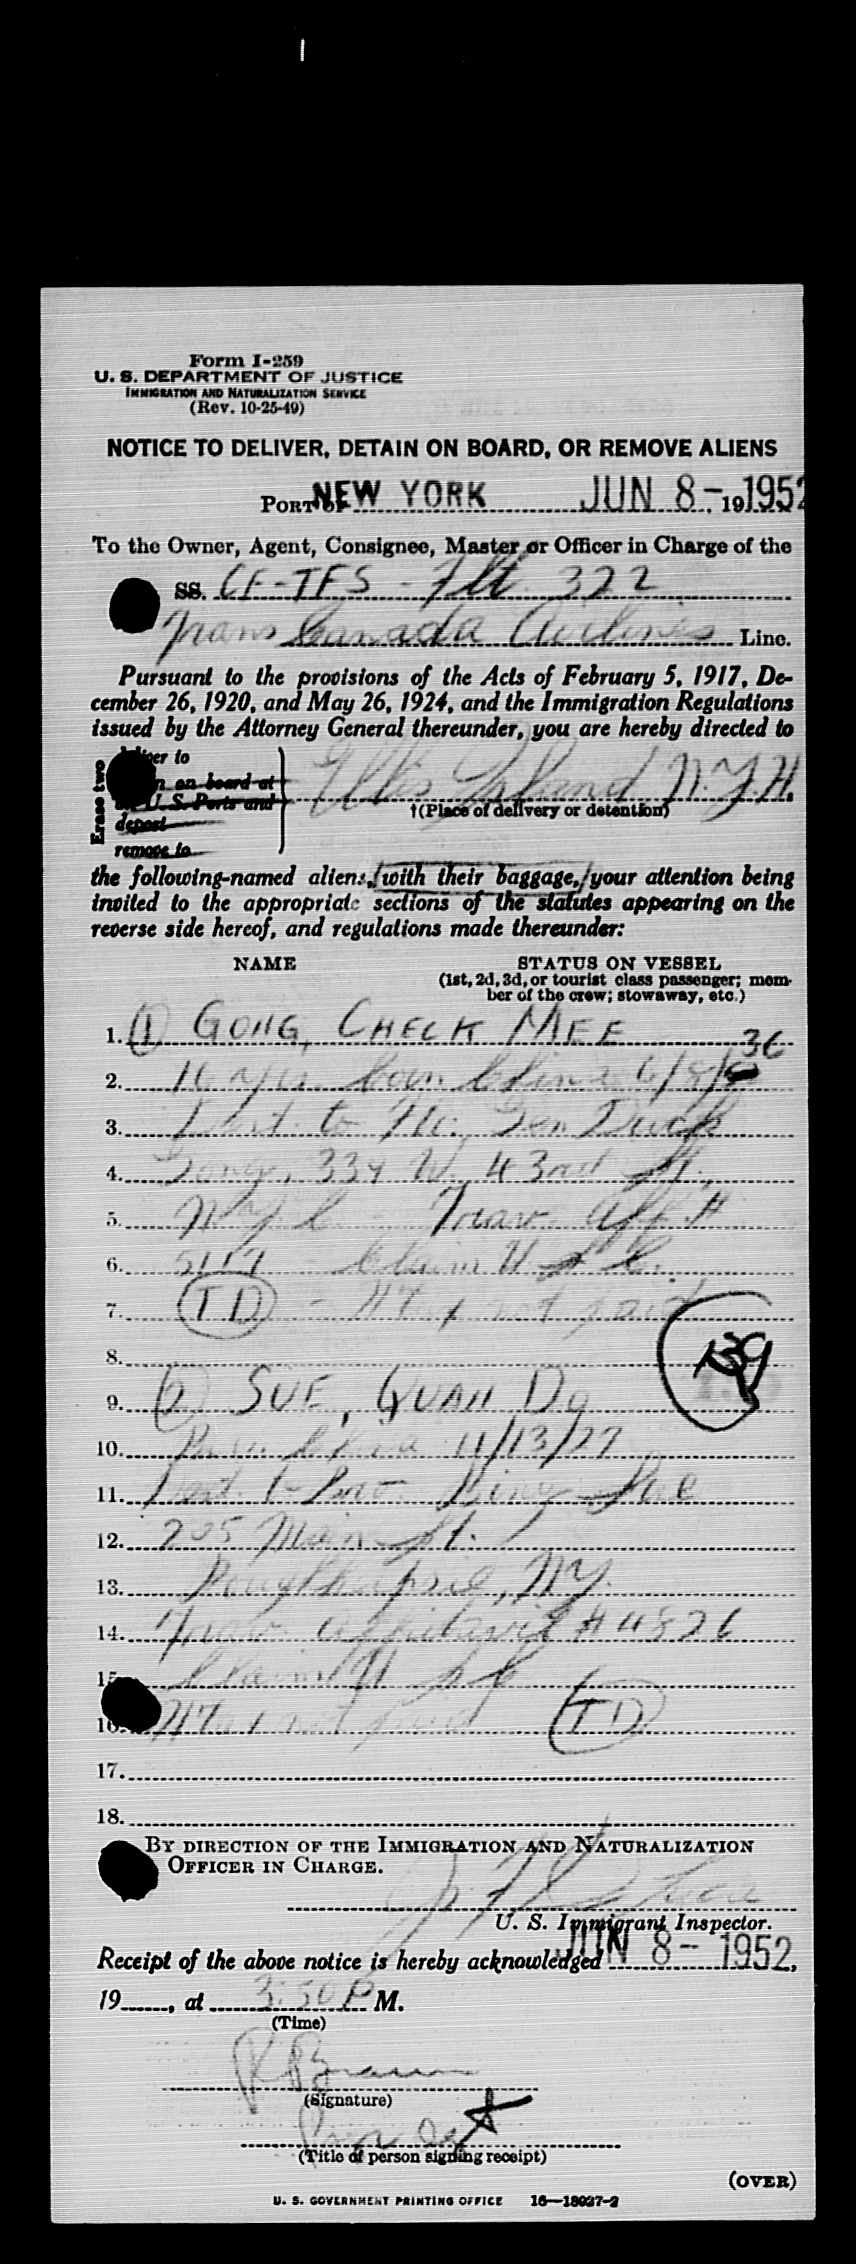 Form I-259
U. S. DEPARTMENT OF JUSTICE
IMMIGRATION AND NATURALIZATION SERVICE
(Rev. 10-25-49)
NOTICE TO DELIVER, DETAIN ON BOARD, OR REMOVE ALIENS
PORT OF NEW YORK JUN 8 - 19 1952
To the Owner, Agent, Consignee, Master or Officer in Charge of the
SS. CF-TFS - Flt. 322
Trans Canada Airlines Line.
Pursuant to the provisions of the Acts of February 5, 1917, De-
cember 26, 1920, and May 26, 1924, and the Immigration Regulations
issued by the Attorney General thereunder, you are hereby directed to
Erase two
to
on board at
U. S. Ports and
deport
remove to
Ellis Island N.Y.H.
†(Place of delivery or detention)
the following-named aliens, with their baggage, your attention being
invited to the appropriate sections of the statutes appearing on the
reverse side hereof, and regulations made thereunder:
NAME STATUS ON VESSEL
(1st, 2d, 3d, or tourist class passenger; mem-
ber of the crew; stowaway, etc.)
1. (1) GONG, CHECK MEE
2. 16 yrs. born China 6/8/36
3. Dest. to
4. Tong, 334 W. 43rd St.
5. N.Y.C. Trav. Aff. #
6. 5117 - Claim U S C.
7. (TD) - HTax not paid
8.
9. (2) SUE, QUAN DO
10. Born China 11/13/27
11. Dest. to Bro. Bing Sue
12. 205 Main St.
13. Poughkeepsie, N.Y.
14. Trav. Affidavit # 4826
15. Claim U S C
16. HTax not paid (TD)
17.
18.
BY DIRECTION OF THE IMMIGRATION AND NATURALIZATION
OFFICER IN CHARGE.
U. S. Immigrant Inspector.
Receipt of the above notice is hereby acknowledged JUN 8 - 1952,
19____, at 3:50 P M.
(Time)
(Signature)
(Title of person signing receipt)
(OVER)
U. S. GOVERNMENT PRINTING OFFICE 16—18037-2